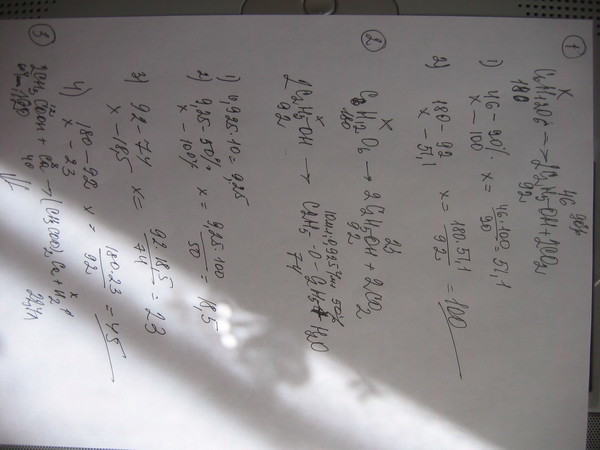 ①
x 46 90%
C6H12O6 → 2C2H5OH + 2CO2
180 92
1) 46 – 90% x = 46·100/90 = 51,1
x – 100
2) 180 – 92 x = 180·51,1/92 = 100
x – 51,1
②
x 23
C6H12O6 → 2C2H5OH + 2CO2
180 92
x 10мл; 0,925г/мл 50%
2C2H5OH → C2H5-O-C2H5 + H2O
92 74
1) 0,925·10 = 9,25
2) 9,25 – 50% x = 9,25·100/50 = 18,5
x – 100%
3) 92 – 74 x = 92·18,5/74 = 23
x – 18,5
4) 180 – 92 x = 180·23/92 = 45
x – 23
③
2CH3COOH + Ca → (CH3COO)2Ca + H2
40